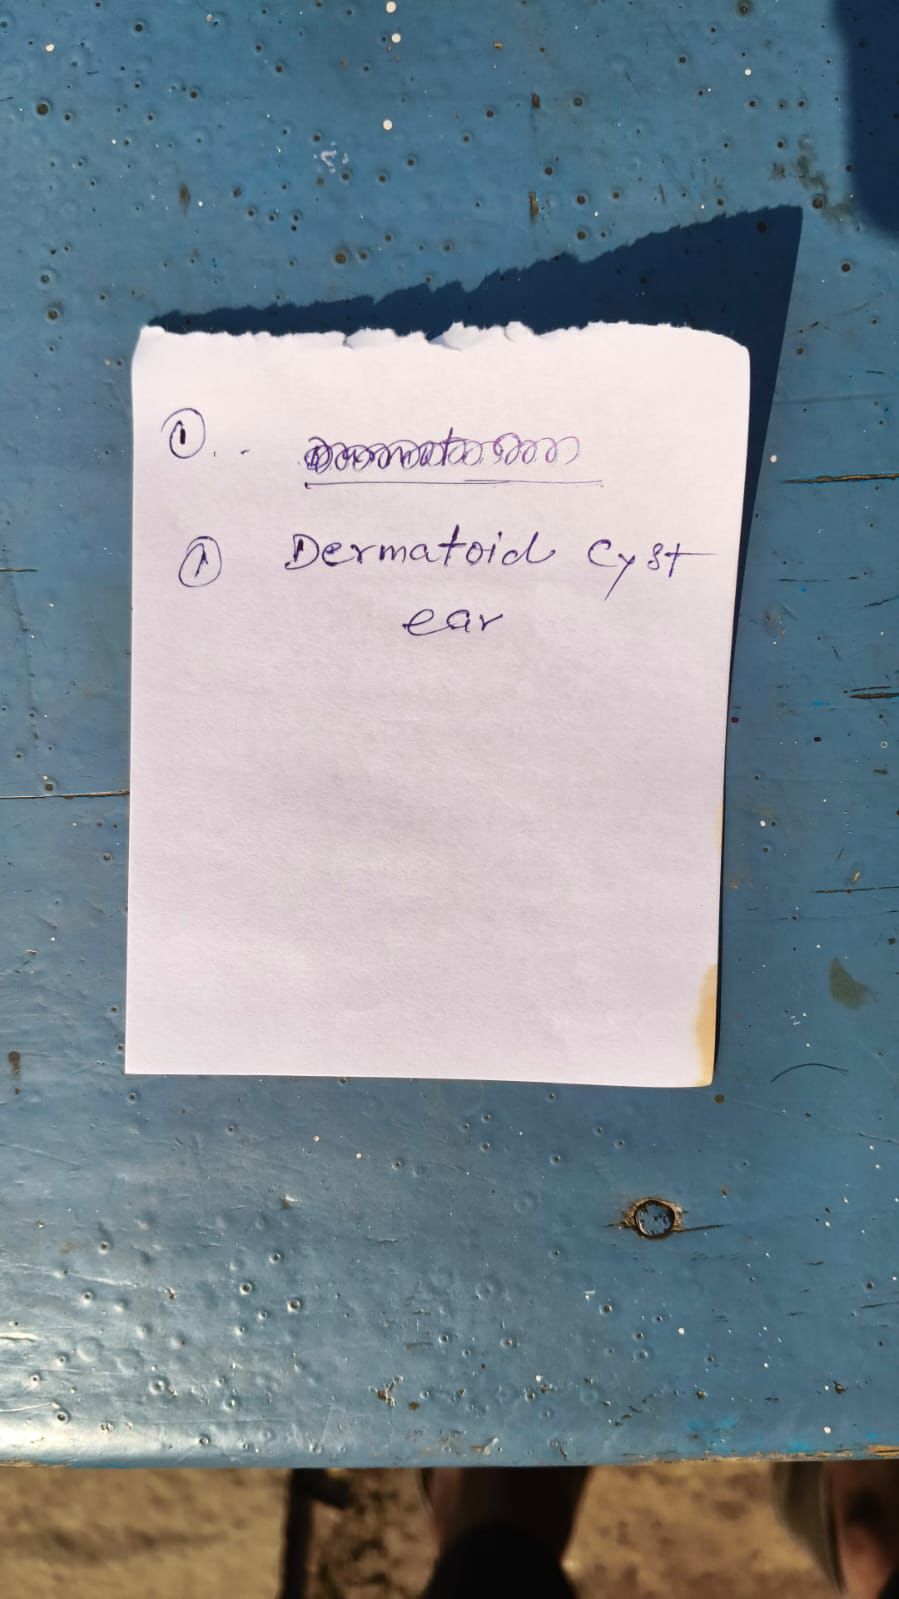 ①
① Dermatoid Cyst
ear